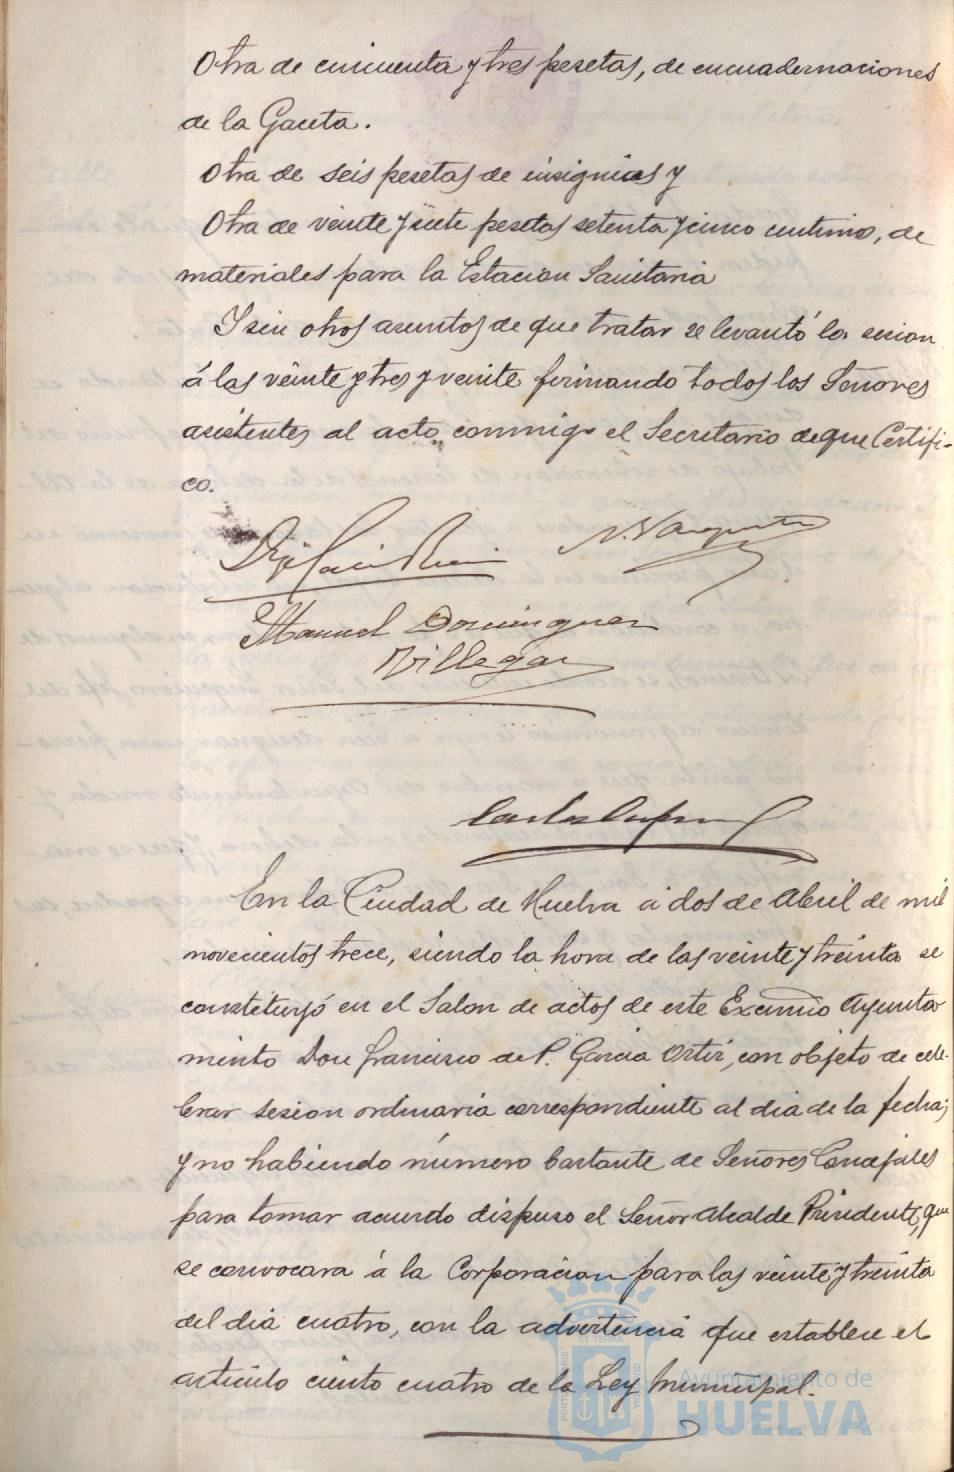 Otra de cincuenta y tres pesetas, de encuadernaciones
de la Gaceta.
Otra de seis pesetas de insignias y
Otra de veinte y siete pesetas setenta y cinco centimos, de
materiales para la Estacion Sanitaria
Y sin otros asuntos de que tratar se levantó la sesion
á las veinte y tres y veinte firmando todos los Señores
asistentes al acto conmigo el Secretario de que Certifi-
co.
N. Vazquez
Manuel Dominguez
Villegas
En la Ciudad de Huelva á dos de Abril de mil
novecientos trece, siendo la hora de las veinte y treinta se
constituyó en el Salon de actos de este Excmo Ayunta
miento Don Francisco de P. Garcia Ortiz, con objeto de cele-
brar sesion ordinaria correspondiente al dia de la fecha;
y no habiendo número bastante de Señores Concejales
para tomar acuerdo dispuso el Señor Alcalde Presidente, que
se convocara á la Corporacion para las veinte y treinta
del dia cuatro, con la advertencia que establece el
articulo ciento cuatro de la Ley Municipal.
Ayuntamiento de
HUELVA